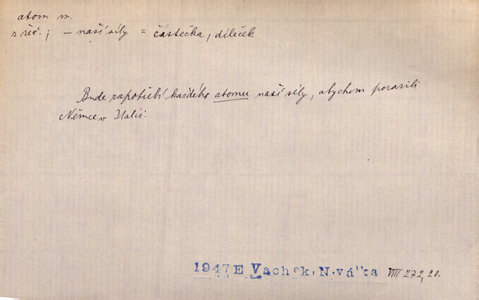 atom m.
z řeč.; – naší síly = částečka, díleček
Bude zapotřebí každého atomu naší síly, abychom porazili
Němce v Italii.
1947 E Vachek, N. válka VIII 272, 20.